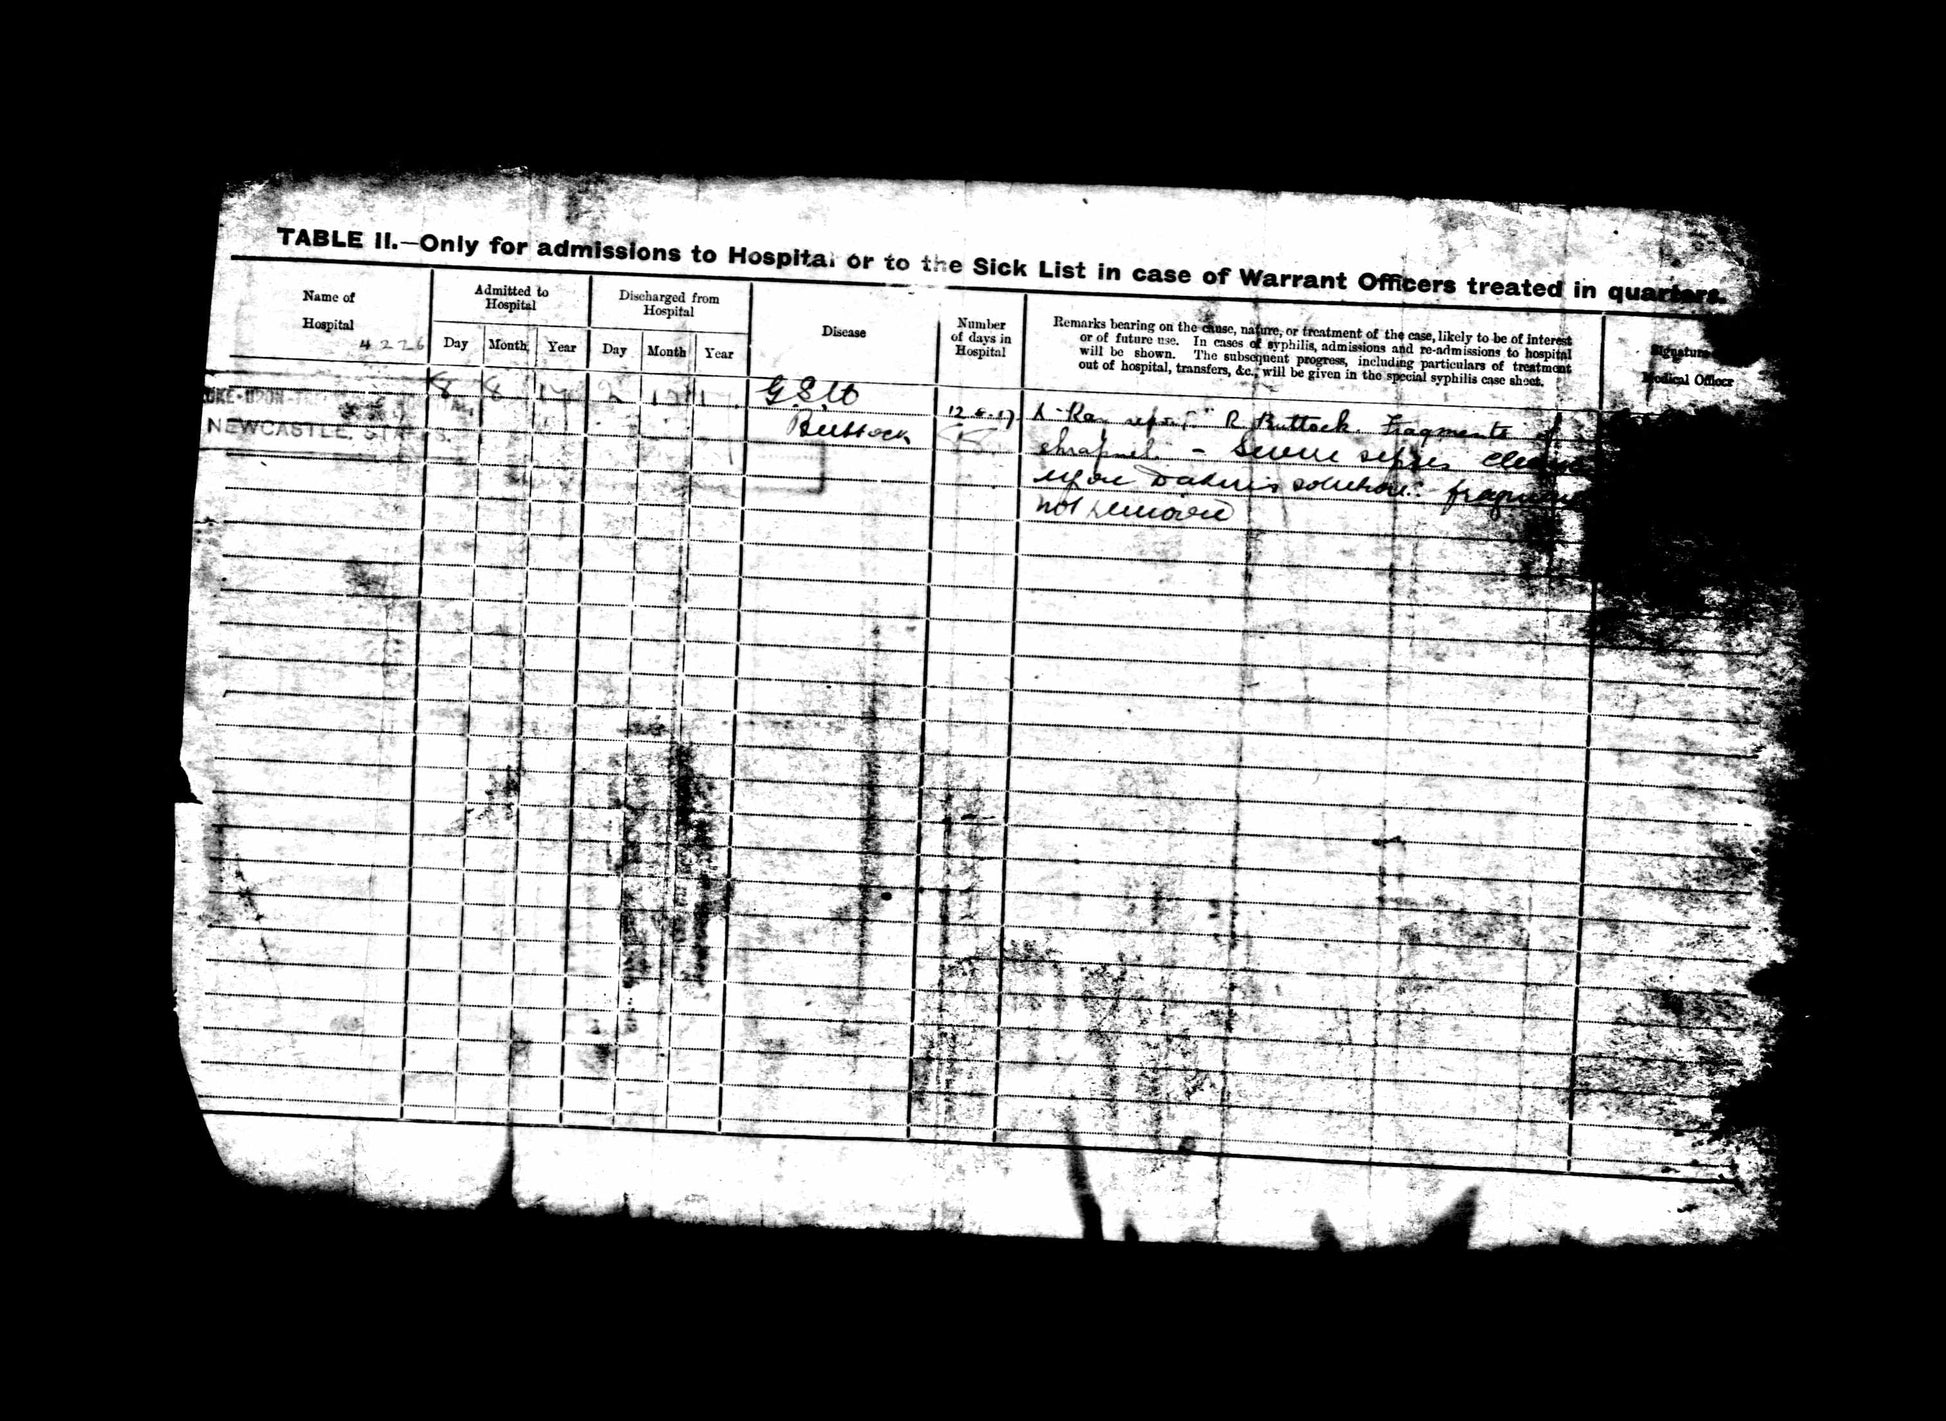 TABLE II.—Only for admissions to Hospital or to the Sick List in case of Warrant Officers treated in quarters.
Name of
Hospital
4226
Admitted to
Hospital
Day Month Year
Discharged from
Hospital
Day Month Year
Disease
Number
of days in
Hospital
Remarks bearing on the cause, nature, or treatment of the case, likely to be of interest
or of future use. In cases of syphilis, admissions and re-admissions to hospital
will be shown. The subsequent progress, including particulars of treatment
out of hospital, transfers, &c., will be given in the special syphilis case sheet.
Signature
Medical Officer
8 8 17 2
G.S.W
Buttock
NEWCASTLE, STAFFS.
12.8.17 X-Ray report " R Buttock. Fragments of
shrapnel. - Severe sepsis
upon Dakin's solution".
not removed